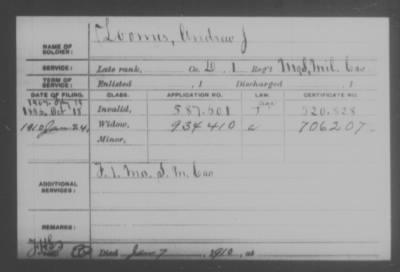 NAME OF SOLDIER: Loomis, Andrew J
SERVICE: Late rank, Co. D, 1 Reg't Mo. S. Mil. Cav
TERM OF SERVICE: Enlisted , 1 Discharged , 1
DATE OF FILING. CLASS. APPLICATION NO. LAW. CERTIFICATE NO.
Invalid, 587.501 520.828
1910 Jan 24, Widow, 934410 706207
Minor,
ADDITIONAL SERVICES: F. 1. Mo. S. M. Cav
REMARKS:
Died Jan 7, 1910, at